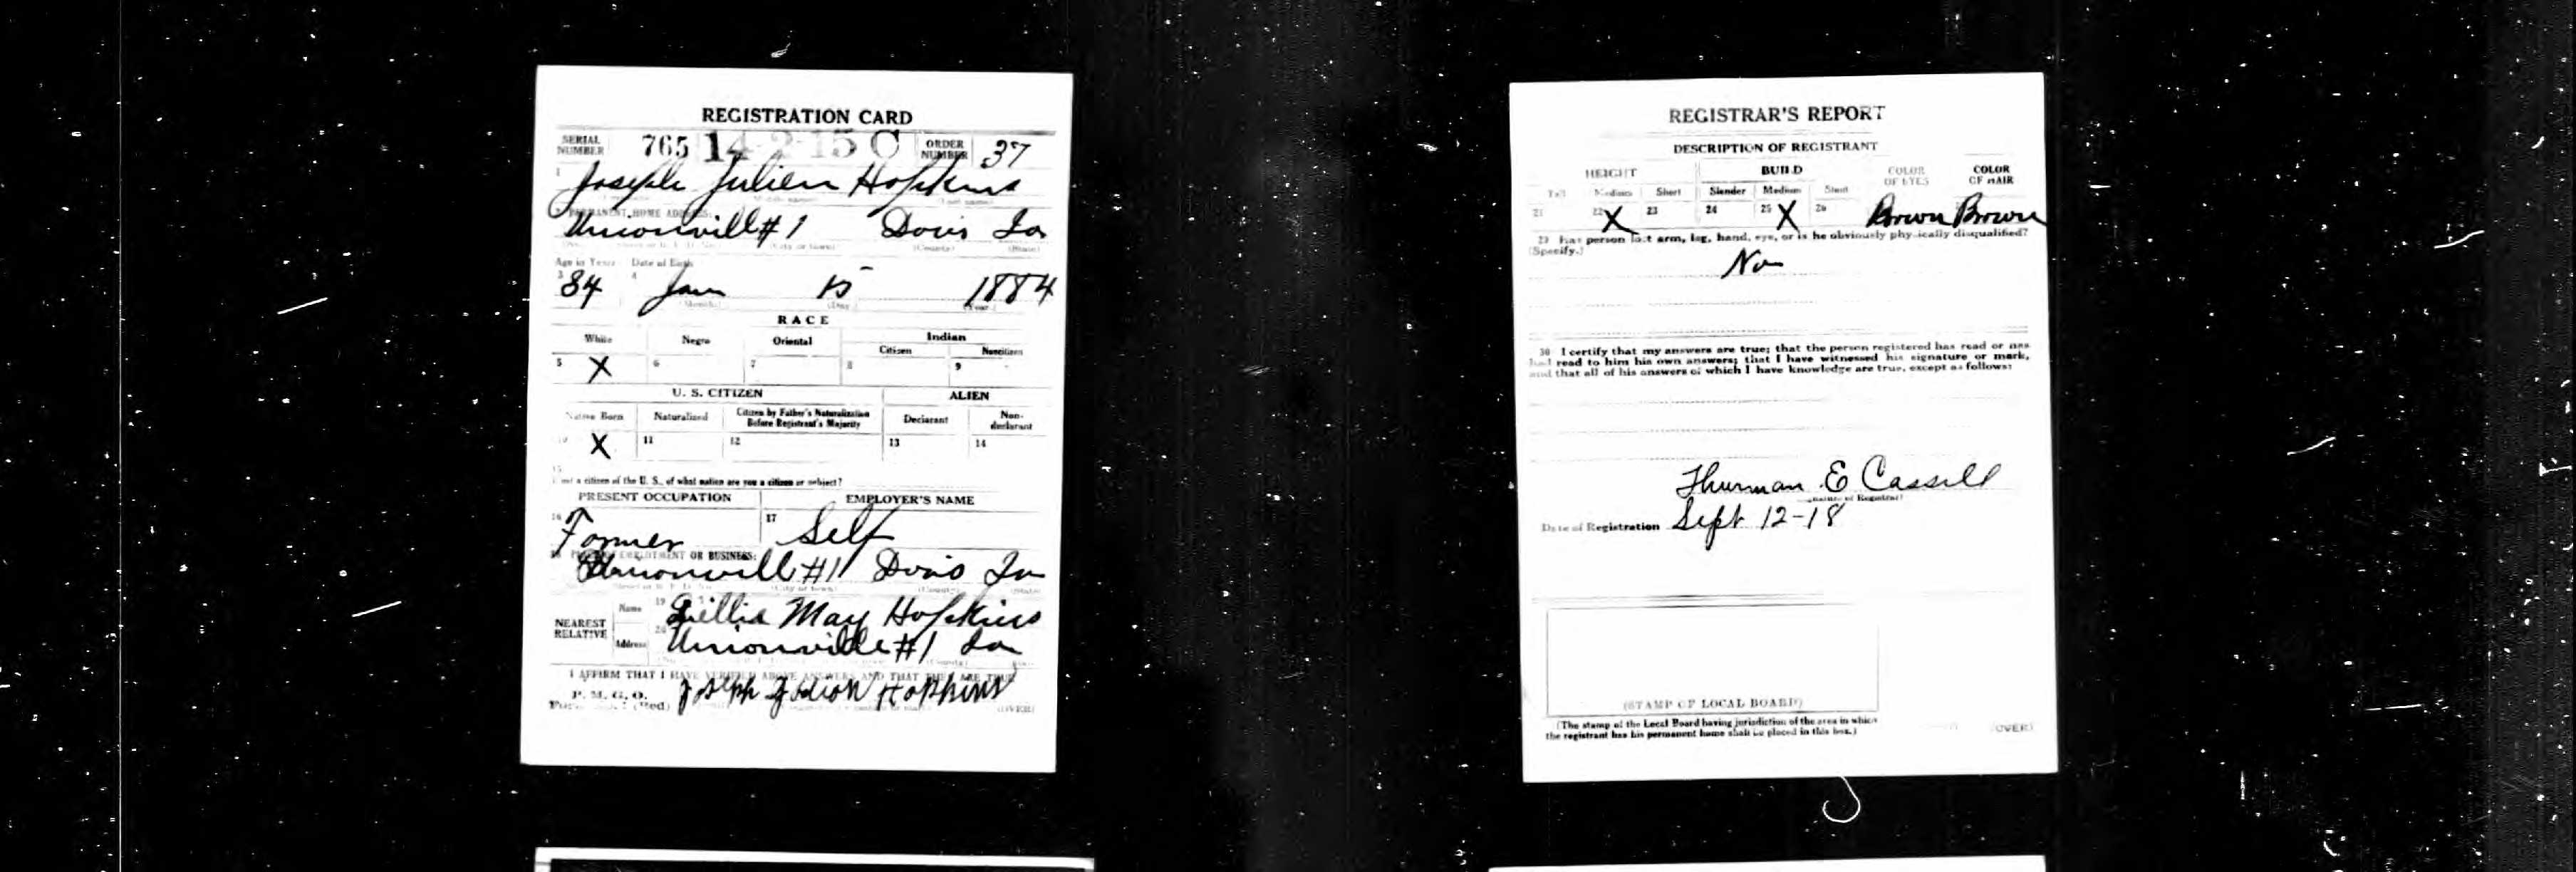 REGISTRATION CARD
SERIAL NUMBER 765 14-2-15 C ORDER NUMBER 37
1 Joseph Julien Hopkins
(Last name)
PERMANENT HOME ADDRESS:
Unionvill #1 Davis Ia
(City or town) (County) (State)
Age in Years Date of Birth
3 34 4 Jan 15 1884
(Month) (Day) (Year)
RACE
White Negro Oriental Indian
Citizen Noncitizen
5 X 6 7 8 9
U. S. CITIZEN ALIEN
Native Born Naturalized Citizen by Father's Naturalization Before Registrant's Majority Declarant Non-declarant
10 X 11 12 13 14
15
not a citizen of the U. S., of what nation are you a citizen or subject?
PRESENT OCCUPATION EMPLOYER'S NAME
16 Farmer 17 Self
18 PLACE OF EMPLOYMENT OR BUSINESS:
Unionvill #1 Davis Ia
(City or town) (County) (State)
NEAREST RELATIVE
Name 19 Lillia May Hopkins
Address 20 Unionville #1 Ia
(County)
I AFFIRM THAT I HAVE VERIFIED ABOVE ANSWERS AND THAT THEY ARE TRUE
P. M. G. O.
(Red) Joseph Julien Hopkins (OVER)
REGISTRAR'S REPORT
DESCRIPTION OF REGISTRANT
HEIGHT BUILD COLOR OF EYES COLOR OF HAIR
Tall Medium Short Slender Medium Stout
21 22 X 23 24 25 X 26 Brown Brown
29 Has person lost arm, leg, hand, eye, or is he obviously physically disqualified?
(Specify.)
No
30 I certify that my answers are true; that the person registered has read or has
had read to him his own answers; that I have witnessed his signature or mark,
and that all of his answers of which I have knowledge are true, except as follows:
Thurman E Cassill
(Signature of Registrar)
Date of Registration Sept 12-18
(STAMP OF LOCAL BOARD)
(The stamp of the Local Board having jurisdiction of the area in which
the registrant has his permanent home shall be placed in this box.)
(OVER)